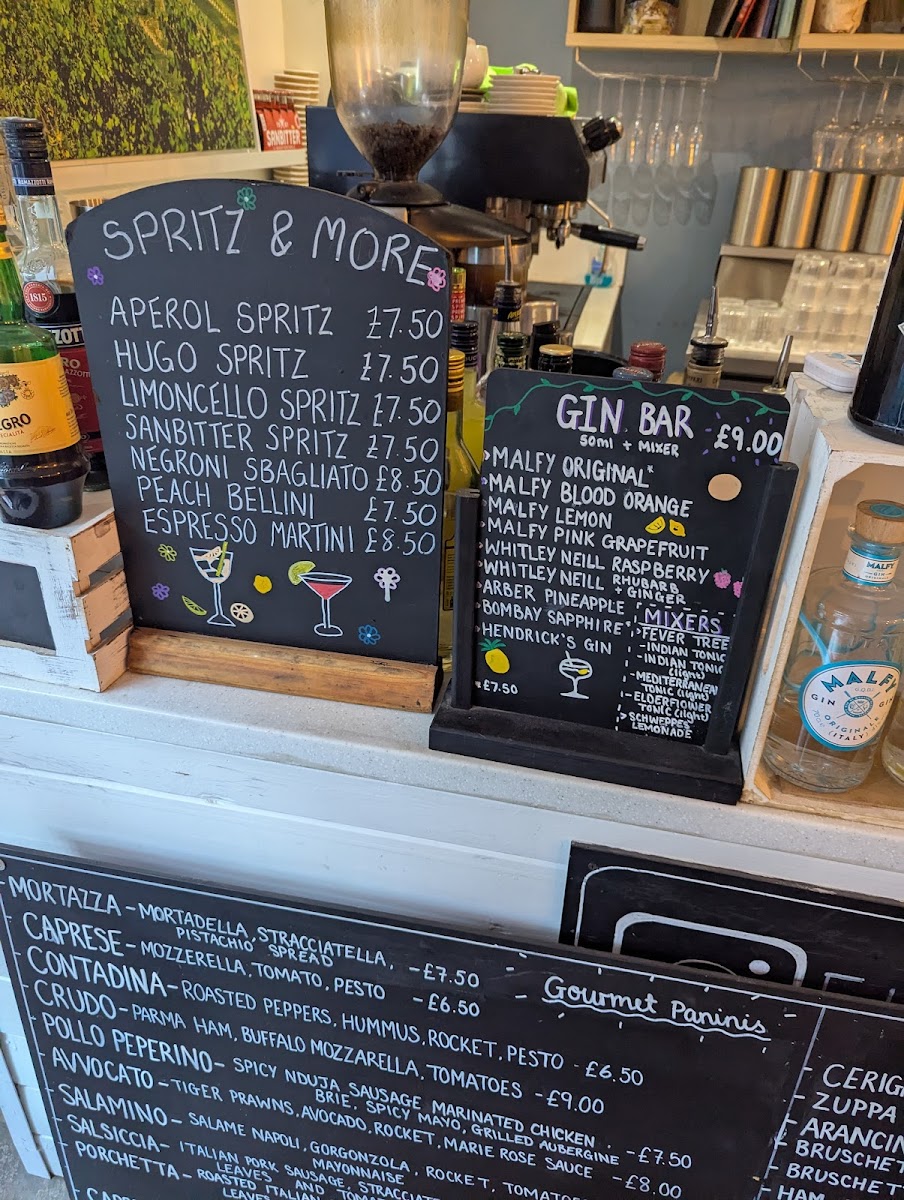 SANBITTER
RAMAZZOTTI
1815
EGRO
SPRITZ & MORE
APEROL SPRITZ £7.50
HUGO SPRITZ £7.50
LIMONCELLO SPRITZ £7.50
SANBITTER SPRITZ £7.50
NEGRONI SBAGLIATO £8.50
PEACH BELLINI £7.50
ESPRESSO MARTINI £8.50
GIN BAR
50ml + MIXER £9.00
MALFY ORIGINAL*
MALFY BLOOD ORANGE
MALFY LEMON
MALFY PINK GRAPEFRUIT
WHITLEY NEILL RASPBERRY
WHITLEY NEILL RHUBARB + GINGER
ARBER PINEAPPLE
BOMBAY SAPPHIRE*
HENDRICK'S GIN
*£7.50
MIXERS
FEVER TREE
-INDIAN TONIC
-INDIAN TONIC
(light)
-MEDITERRANEAN
TONIC (light)
-ELDERFLOWER
TONIC (light)
SCHWEPPES
LEMONADE
MALFY
GIN
MALFY
GIN GIN
ORIGINALE
(ITALY)
Gourmet Paninis
MORTAZZA - MORTADELLA, STRACCIATELLA,
PISTACHIO SPREAD - £7.50
CAPRESE - MOZZERELLA, TOMATO, PESTO - £6.50
CONTADINA - ROASTED PEPPERS, HUMMUS, ROCKET, PESTO - £6.50
CRUDO - PARMA HAM, BUFFALO MOZZARELLA, TOMATOES - £9.00
POLLO PEPERINO - SPICY NDUJA SAUSAGE, MARINATED CHICKEN,
BRIE, SPICY MAYO, GRILLED AUBERGINE - £7.50
AVVOCATO - TIGER PRAWNS, AVOCADO, ROCKET, MARIE ROSE SAUCE - £8.00
SALAMINO - SALAME NAPOLI, GORGONZOLA, ROCKET, TOMATO
MAYONNAISE
SALSICCIA - ITALIAN PORK SAUSAGE, STRACCIATE
LEAVES AND TOMA
PORCHETTA - ROASTED ITALIAN
LEAVE
CAPR
CERIG
- ZUPPA
- ARANCIN
BRUSCHET
- BRUSCHET
HAN